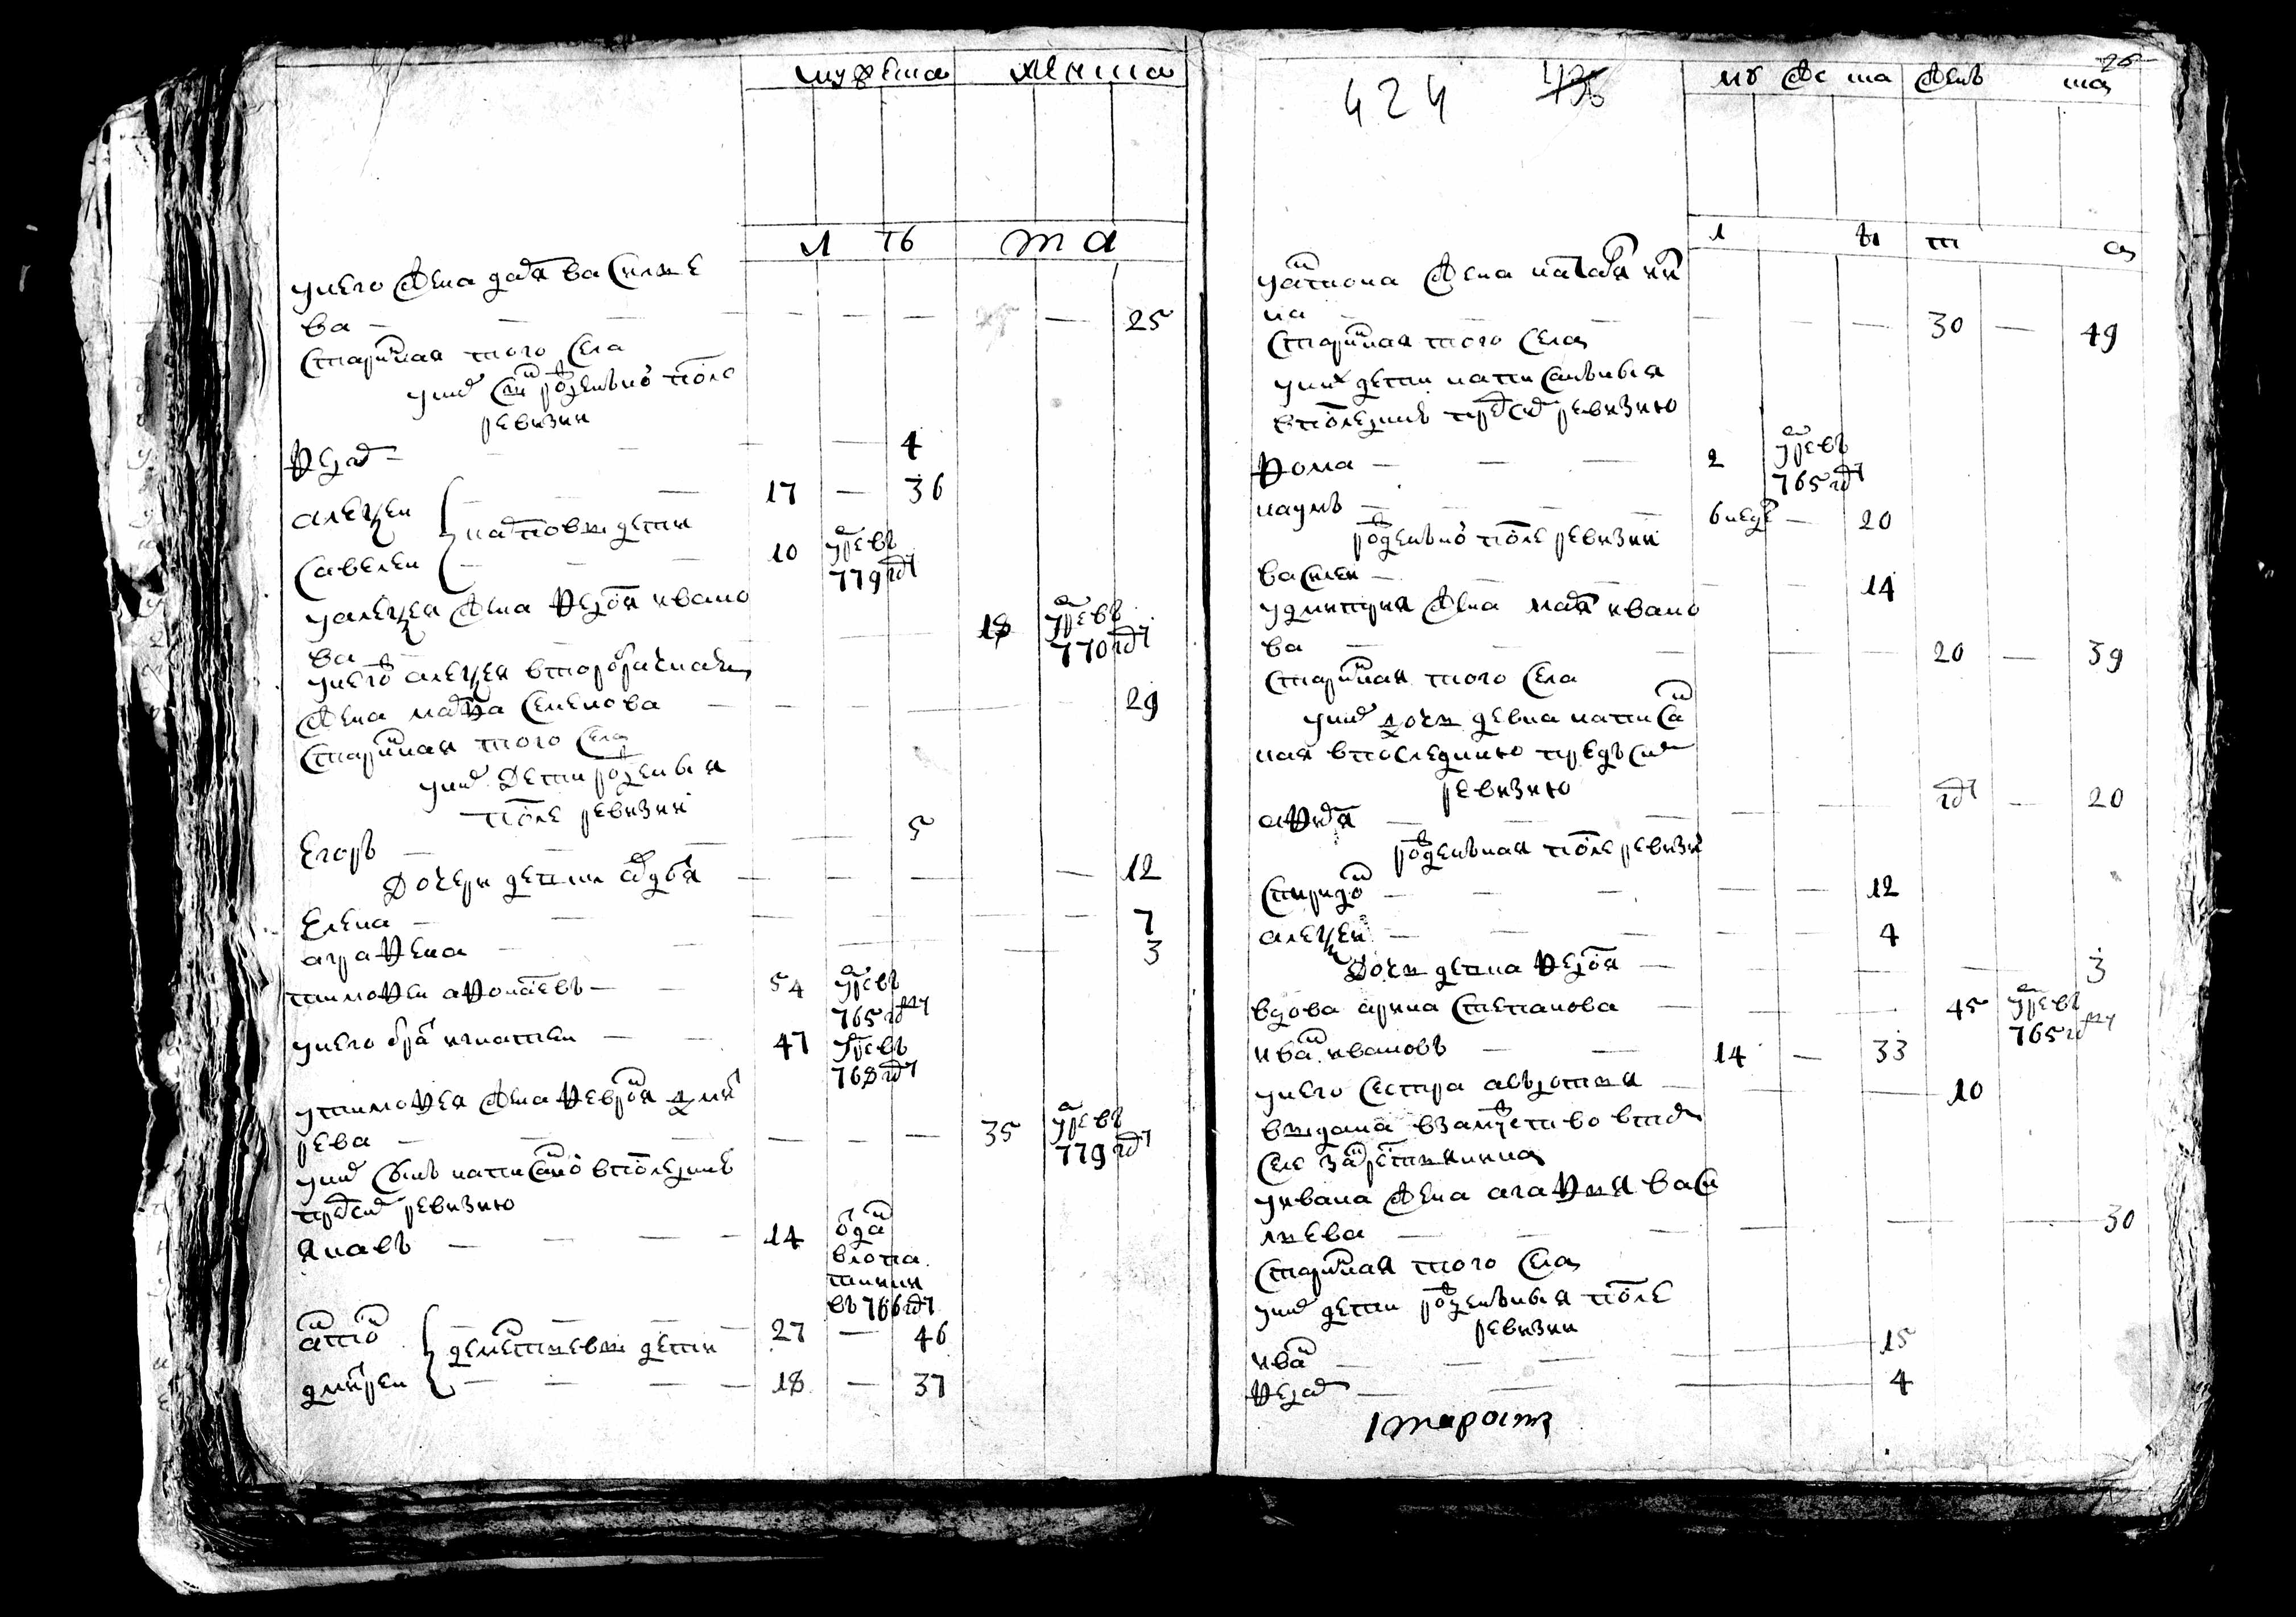 мужеска женска
лѣта
у него жена дарья василье
ва — — — 25
старинная того села
у них сын рожденной после
ревизии
Федор — 4
алексеи — 17 — 36
карповы дети
савелеи — 10 умре въ 779 году
у алексея жена Федосья ивано
ва — 18 умре въ 770 году
у него алексея второбрачная
жена марфа семенова — 29
старинная того села
у них дети рожденныя
после ревизии
Егоръ — 5
Дочери девки авдотья — 12
Елена — 7
аграфена — 3
тимофеи афонасьевъ — 54 умре въ 765 году
у него брат игнатеи — 47 умре въ 768 году
у тимофея жена Феврония дмит
рева — 35 умре въ 779 году
у них сынъ написанной в последнею
пред сию ревизию
яковъ — 14 отдан
в рекруты
въ 766 году
антон — 27 — 46
дементьевы дети
дмитреи — 18 — 37
424 436
26
мужеска женска
лѣта
у антона жена наталья ники
на — 30 — 49
старинная того села
у них дети написанныя
в последнею пред сию ревизию
Фома — 2 умре въ 765 году
наумъ — 6 недель — 20
рожденной после ревизии
василеи — 14
у дмитрия жена марья ивано
ва — 20 — 39
старинная того села
у них дочь девка написан
ная в последнюю предъ сию
ревизию
афимья — году — 20
рожденныя после ревизии
спиридон — 12
алексеи — 4
Дочь девка Федосья — 3
вдова арина степанова — 45 умре въ 765 году
иван ивановъ — 14 — 33
у него сестра авдотья — 10
выдана в замужество в том
селе за крестьянина
у ивана жена агафья васи
льева — 30
старинная того села
у них дети рожденныя после
ревизии
иван — 15
Федор — 4